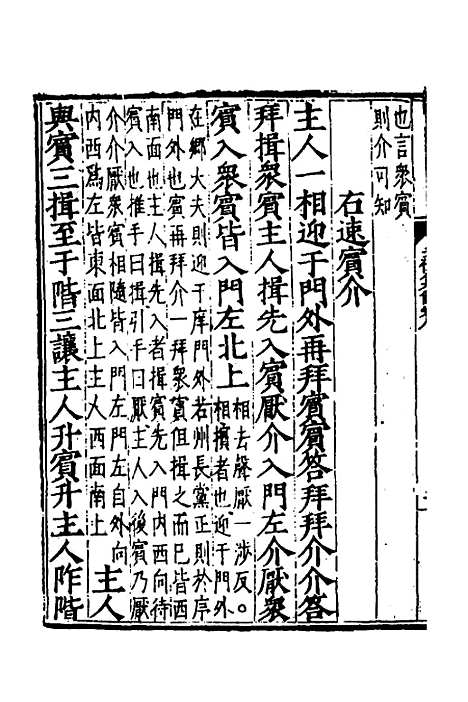 也言衆賓
則介可知
右速賔介
主人一相迎于門外再拜賔賔答拜拜介介答
拜揖衆賔主人揖先入賔厭介入門左介厭衆
賔入衆賔皆入門左北上
相去聲厭一涉反。
相擯者也迎于門外
在鄉大夫則迎于庠門外若州長黨正則於序
門外也賔再拜介一拜衆賔但揖之而已皆西
南面也主人揖先入者揖賔先入門内西向待
賔入也推手曰揖引手曰厭主人入後賔乃厭
介介厭衆賔相隨皆入門左門左自外向
内西爲左皆東面北上主人西面南上
主人
與賔三揖至于階三讓主人升賔升主人阼階